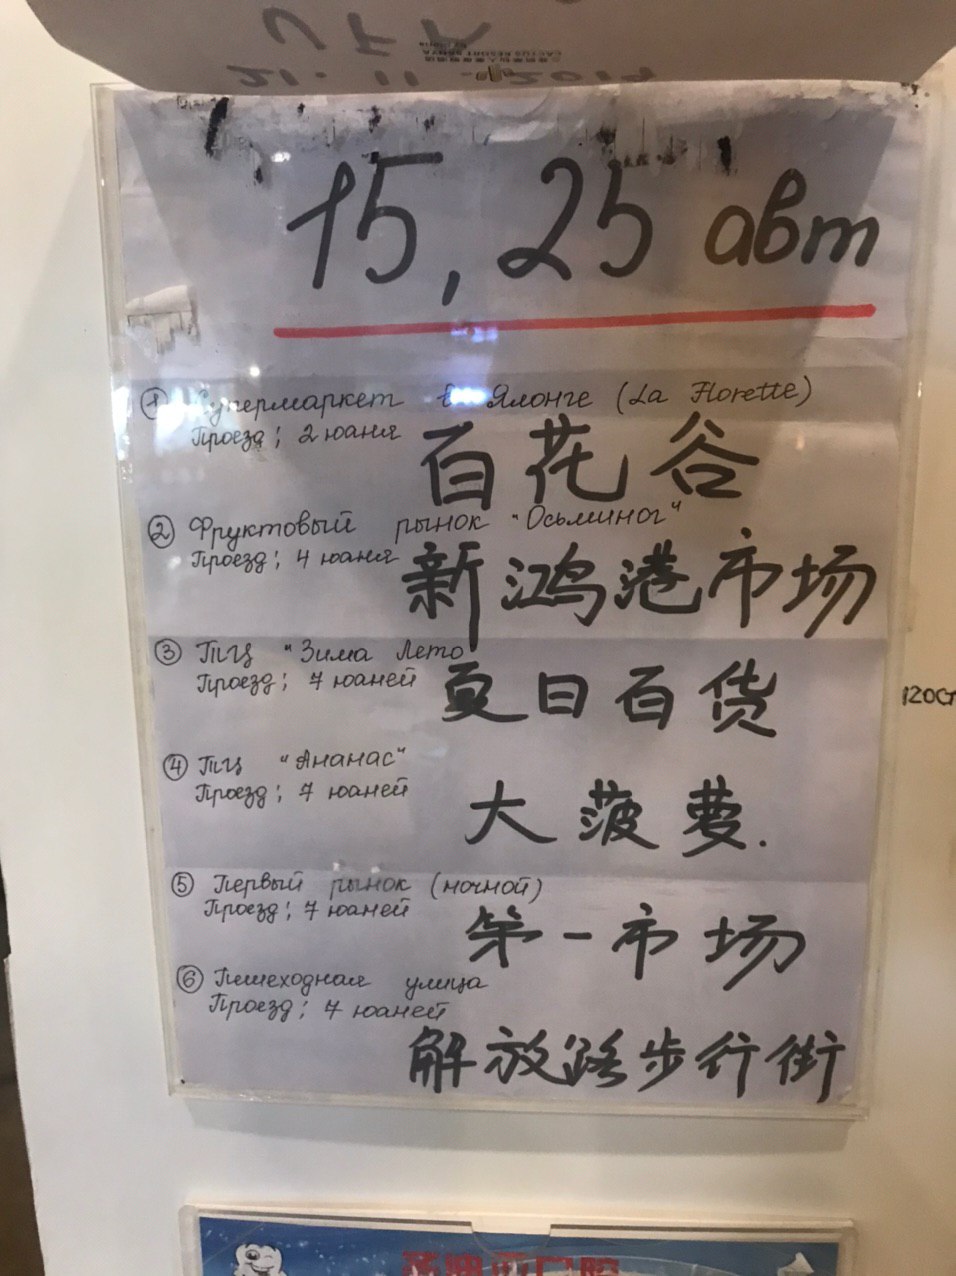 21. 11. 2019
15, 25 авт
① Супермаркет в Ялонге (La Florette)
Проезд: 2 юаня
百花谷
② Фруктовый рынок "Осьминог"
Проезд: 4 юаня
新鸿港市场
③ ТЦ "Зима Лето
Проезд: 7 юаней
夏日百货
④ ТЦ "Ананас"
Проезд: 7 юаней
大菠萝.
⑤ Первый рынок (ночной)
Проезд: 7 юаней
第一市场
⑥ Пешеходная улица
Проезд: 7 юаней
解放路步行街
120CM